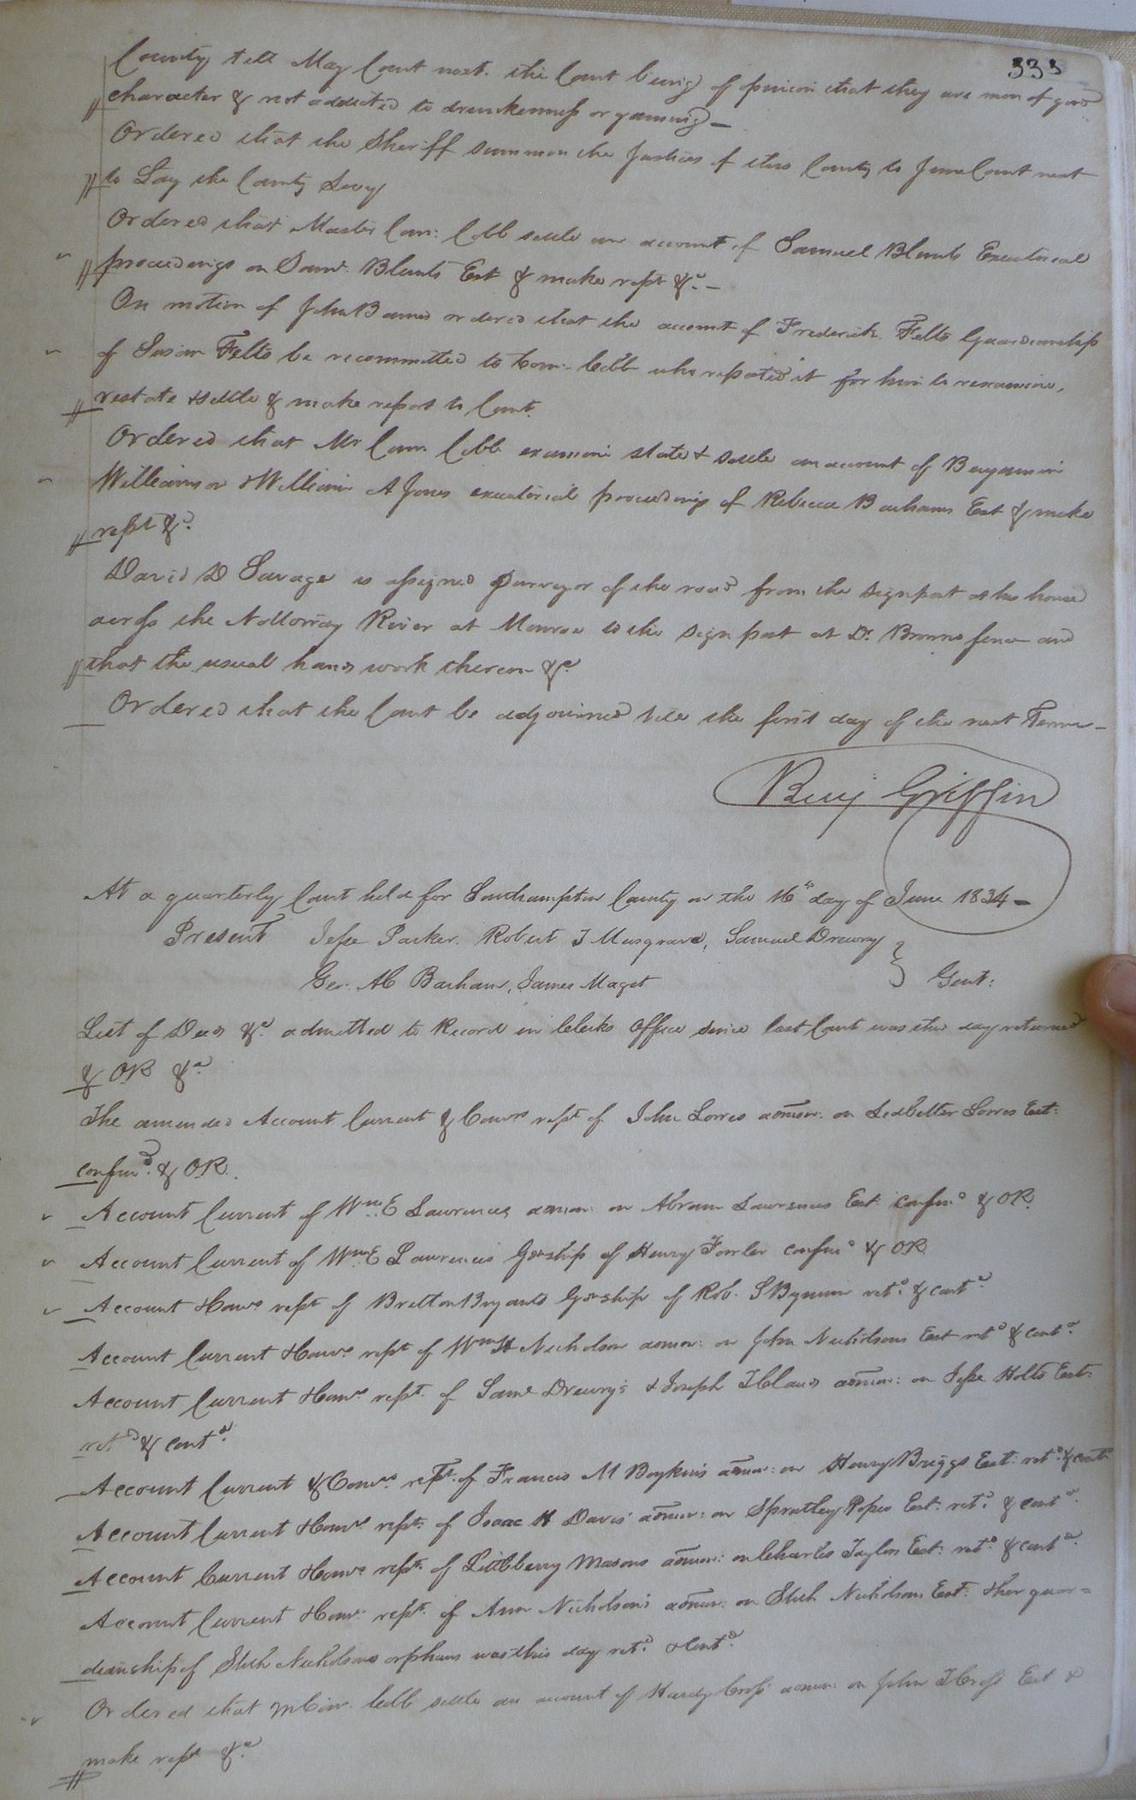 333
County till May Court next. the Court being of opinion that they are men of good
character & not addicted to drunkenness or gaming —
Ordered that the Sheriff summon the Justices of this County to June Court next
to Lay the County Levy
Ordered that Master Com: Cobb settle an account of Samuel Blunts Executorial
proceedings on Saml. Blunts Est & make rept &c. —
On motion of John Barnes ordered that the account of Frederick Felts Guardianship
of Susan Felts be recommitted to Com. Cobb who reported it for him to reexamine,
restate & settle & make report to Court.
Ordered that Mr Com. Cobb examine state & settle an account of Benjamin
Williamson & William A Jones executorial proceedings of Rebecca Barhams Est & make
rept &c.
David D Savage is assigned Surveyor of the road from the sign post at his house
across the Nottoway River at Monroe to the sign post at Dr. Browns fence and
that the usual hands work thereon &c
Ordered that the Court be adjourned till the first day of the next Term —
Benj Griffin
At a quarterly Court held for Southampton County on the 16th day of June 1834 —
Present Jesse Parker, Robert T Musgrave, Samuel Drewry
Geo. H C Barham, James Maget } Gent:
List of Deeds &c. admitted to Record in Clerks Office since last Court was this day returned
& OR &c
The amended Account Current & Comrs rept of John Lorres admor: on Ledbetter Lorres Est:
confmd. & OR.
Account Current of Wm. E Lawrences admor: on Abram Lawrences Est confmd & OR
Account Current of Wm E Lawrences Gdnship of Henry Fowler confmd & OR
Account & Comrs rept of Bretton Bryants Gdnship of Rob. S Bynum retd & contd
Account Current & Comrs rept of Wm H Nicholson admor: on John Nicholsons Est retd & contd.
Account Current & Comrs rept. of Saml Drewry's & Joseph T Claud admor: on Jesse Holts Est:
retd & contd.
Account Current & Comrs rept. of Francis M Boykins admor: on Henry Briggs Est: retd. & contd
Account Current & Comrs rept: of Isaac H Davis' admor: on Spratley Popes Est: retd & contd.
Account Current & Comrs rept. of Littleberry Masons admor: on Charles Taylors Est: retd. & contd.
Account Current & Comrs rept. of Ann Nicholson's admor: on Stith Nicholsons Est: & her guar=
dianship of Stith Nicholsons orphans was this day retd & contd.
Ordered that M Com. Cobb settle an account of Hardy Cross' admor: on John T Cross Est &
make rept &c